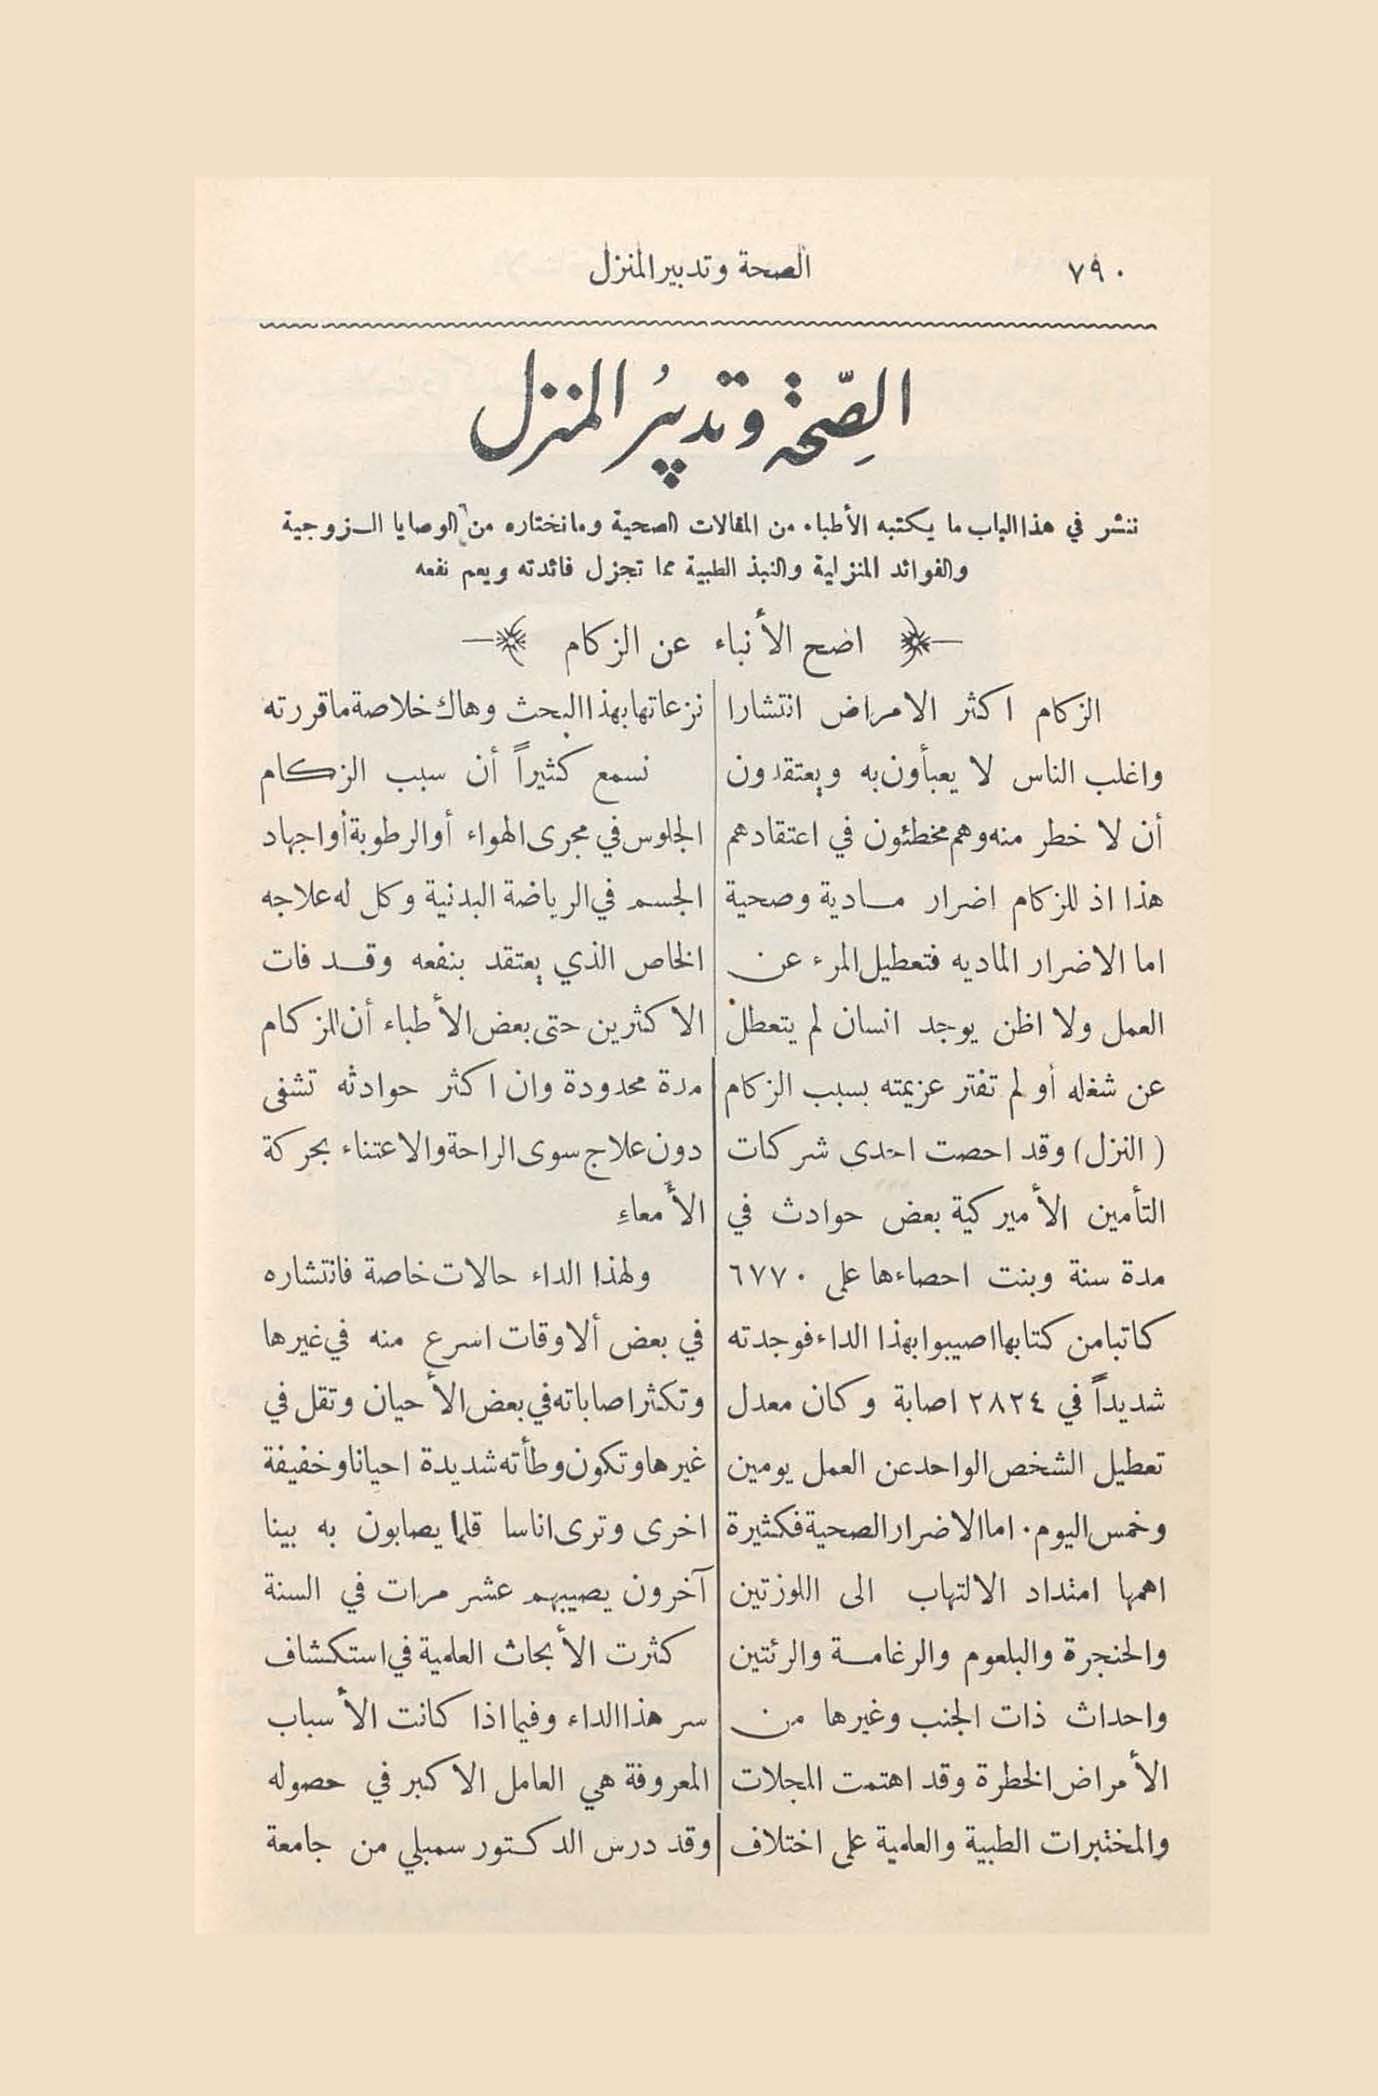 ٧٩٠
الصحة وتدبير المنزل
الصِّحة وتدبيرُ المنزل
ننشر في هذا الباب ما يكتبه الأطباء من المقالات الصحية وما نختاره من الوصايا الزوجية
والفوائد المنزلية والنبذ الطبية مما تجزل فائدته ويعم نفعه
اضح الأنباء عن الزكام
الزكام اكثر الامراض انتشارا
واغلب الناس لا يعبأون به ويعتقدون
أن لا خطر منه وهم مخطئون في اعتقادهم
هذا اذ للزكام اضرار مادية وصحية
اما الاضرار الماديه فتعطيل المرء عن
العمل ولا اظن يوجد انسان لم يتعطل
عن شغله أو لم تفتر عزيمته بسبب الزكام
( النزل ) وقد احصت احدى شركات
التأمين الأميركية بعض حوادث في
مدة سنة وبنت احصاءها على ٦٧٧٠
كاتبا من كتابها اصيبوا بهذا الداء فوجدته
شديداً في ٢٨٢٤ اصابة وكان معدل
تعطيل الشخص الواحد عن العمل يومين
وخمس اليوم. اما الاضرار الصحية فكثيرة
اهمها امتداد الالتهاب الى اللوزتين
والحنجرة والبلعوم والرغامة والرئتين
واحداث ذات الجنب وغيرها من
الأمراض الخطرة وقد اهتمت المجلات
والمختبرات الطبية والعلمية على اختلاف
نزعاتها بهذا البحث وهاك خلاصة ما قررته
نسمع كثيراً أن سبب الزكام
الجلوس في مجرى الهواء أو الرطوبة أو اجهاد
الجسم في الرياضة البدنية وكل له علاجه
الخاص الذي يعتقد بنفعه وقد فات
الاكثرين حتى بعض الأطباء أن الزكام
مدة محدودة وان اكثر حوادثه تشفى
دون علاج سوى الراحة والاعتناء بحركة
الأمعاءِ
ولهذا الداء حالات خاصة فانتشاره
في بعض ألاوقات اسرع منه في غيرها
وتكثر اصاباته في بعض الأحيان وتقل في
غيرها وتكون وطأته شديدة احيانا وخفيفة
اخرى وترى اناسا قلما يصابون به بينا
آخرون يصيبهم عشر مرات في السنة
كثرت الأبحاث العلمية في استكشاف
سر هذا الداء وفيما اذا كانت الأسباب
المعروفة هي العامل الاكبر في حصوله
وقد درس الدكتور سمبلي من جامعة